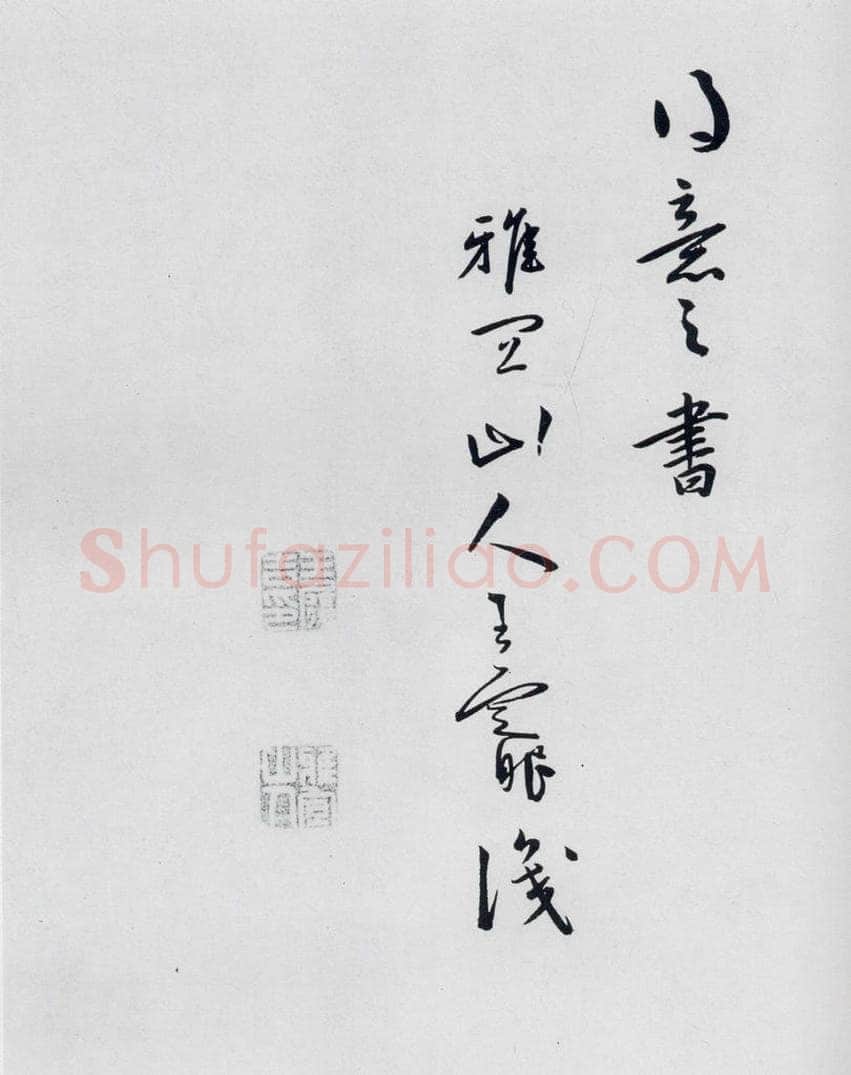 得意之書
雅宜山人王寵識
雅宜山人
Shufaziliao.COM